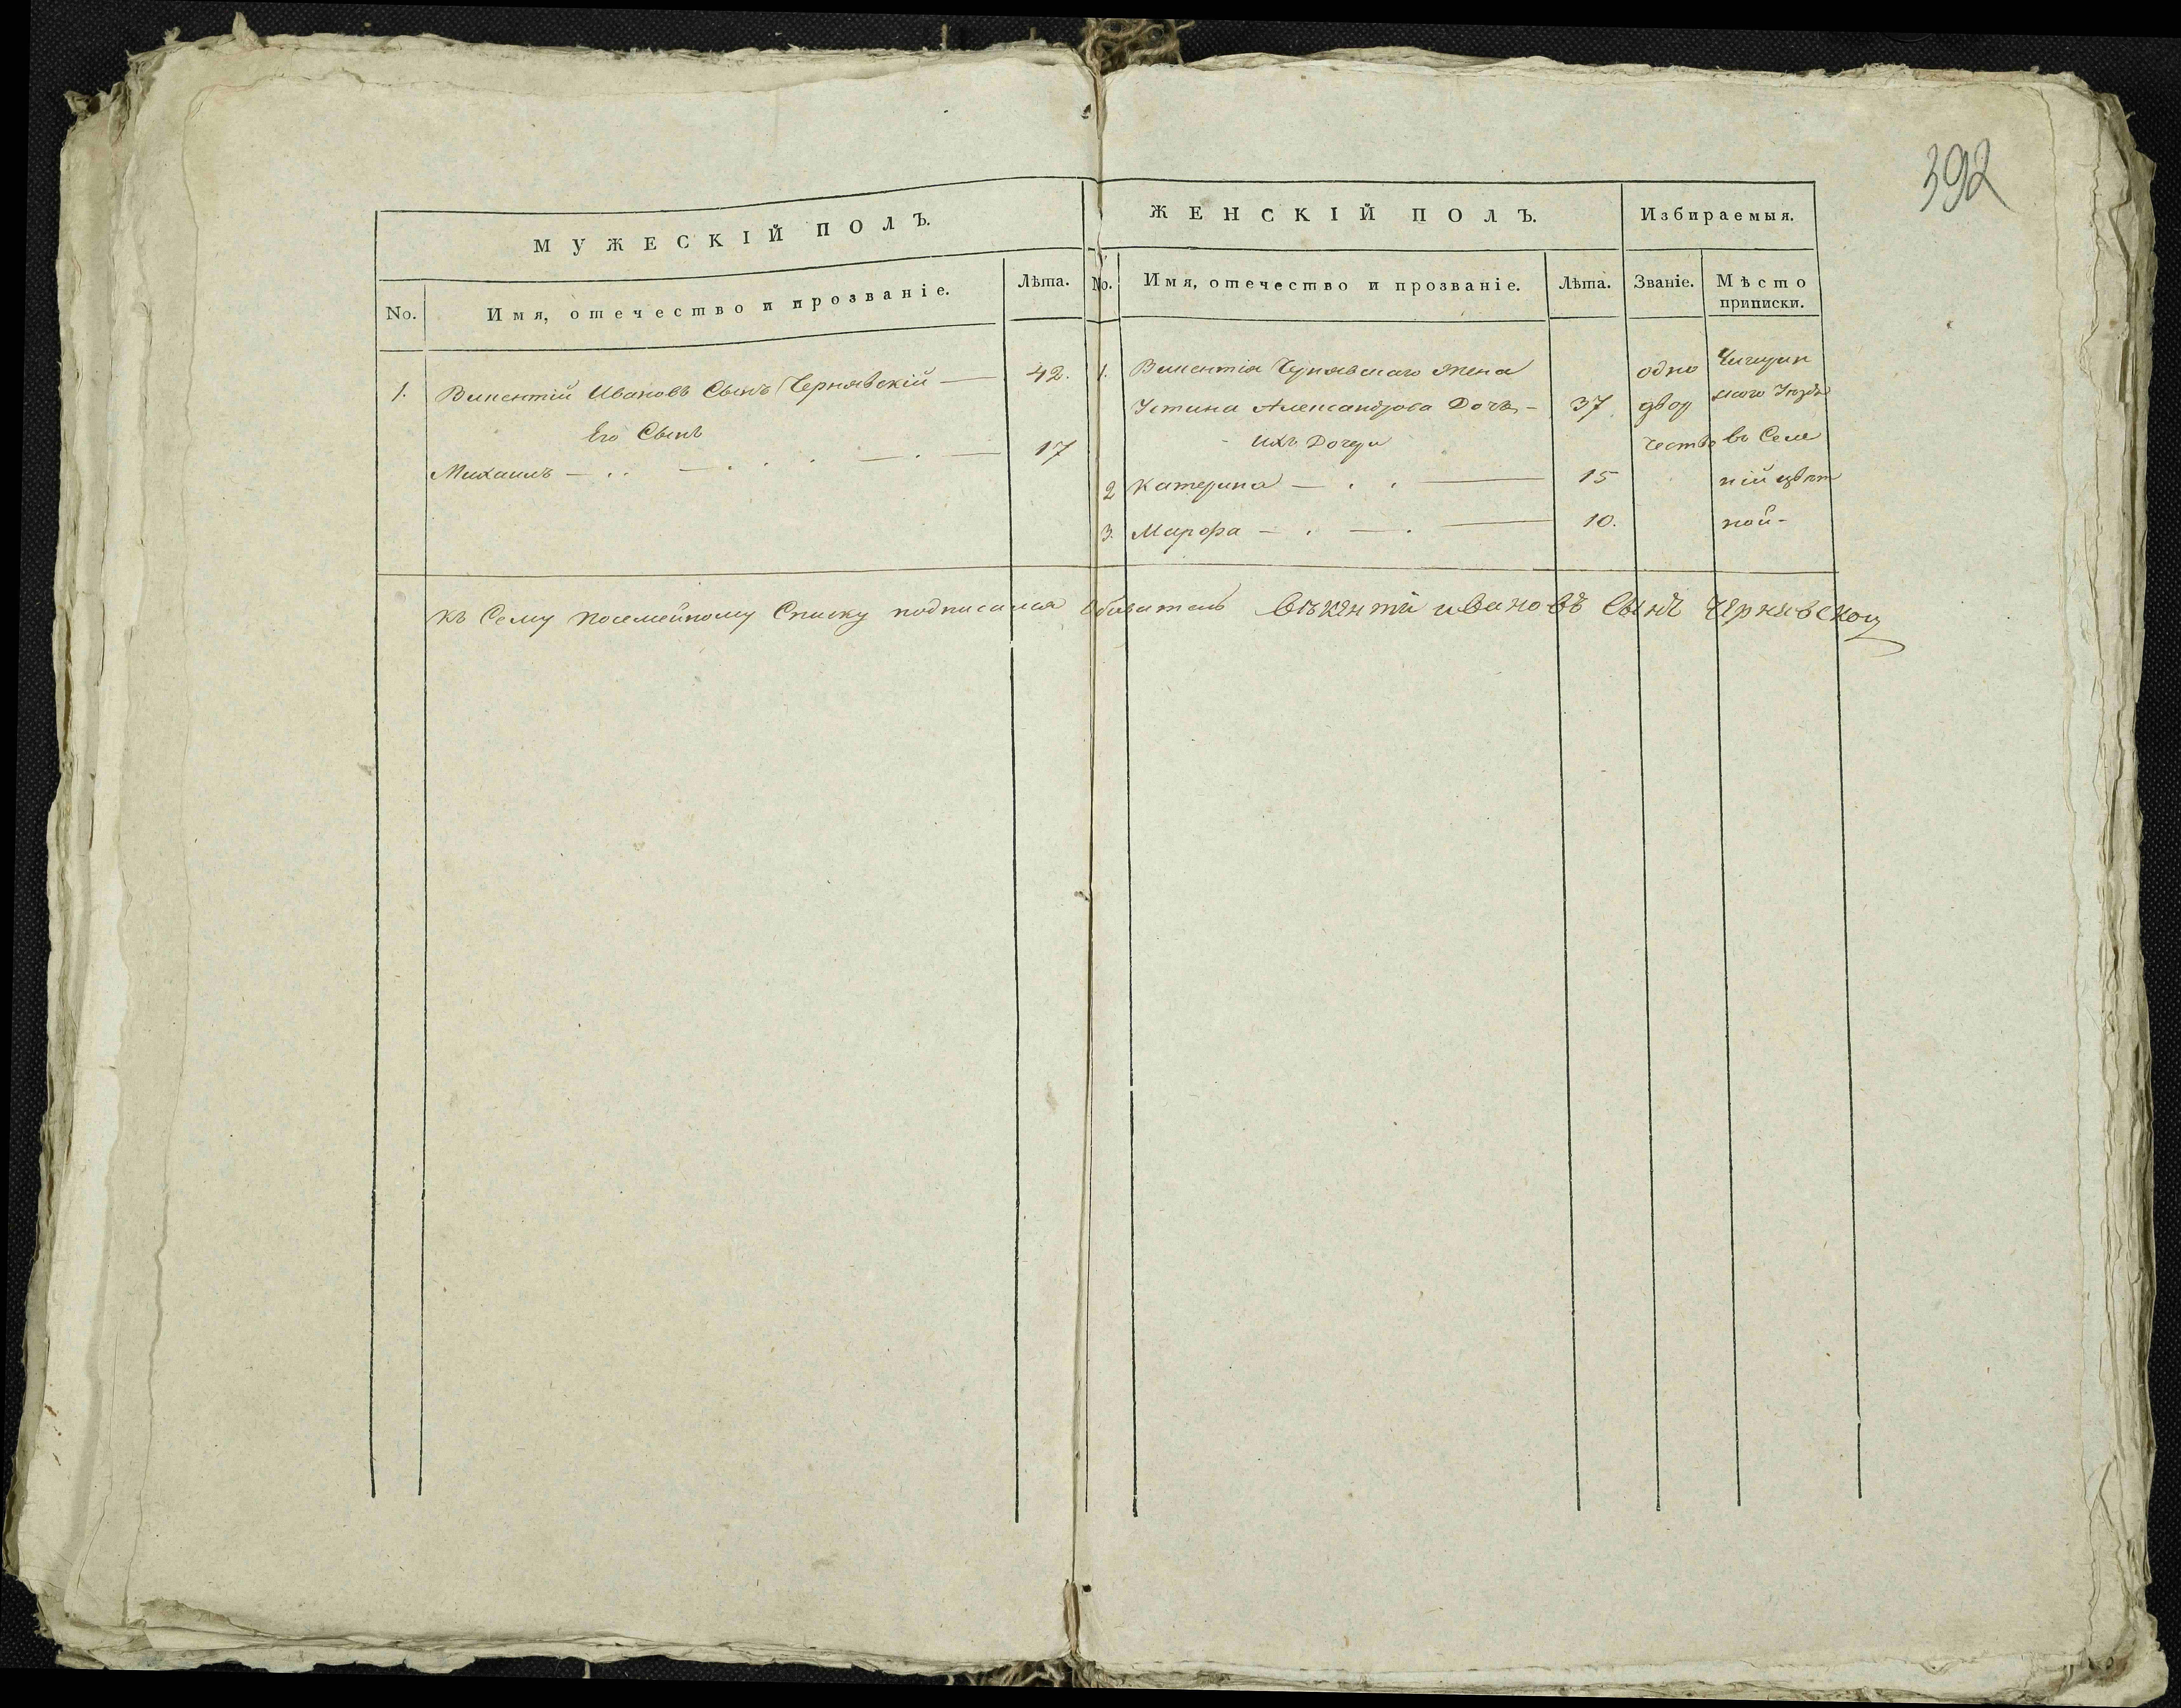 392
МУЖЕСКІЙ ПОЛЪ.
No. Имя, отечество и прозваніе. Лѣта.
1. Викентій Ивановъ Сынъ Чернявскій — 42.
Его Сынъ
Михаилъ — 17
ЖЕНСКІЙ ПОЛЪ. Избираемыя.
No. Имя, отечество и прозваніе. Лѣта. Званіе. Мѣсто приписки.
1. Викентія Чернявскаго жена
Устина Александрова Дочь — 37.
Ихъ Дочери
2 Катерина — 15
3. Марфа — 10.
одно
двор
чество
Чигирин
скаго Уѣзда
въ Селе
ній цвѣт
ной-
къ Сему посемейному Списку подписался Обыватель Викентй ивановъ Сынъ Чернявской